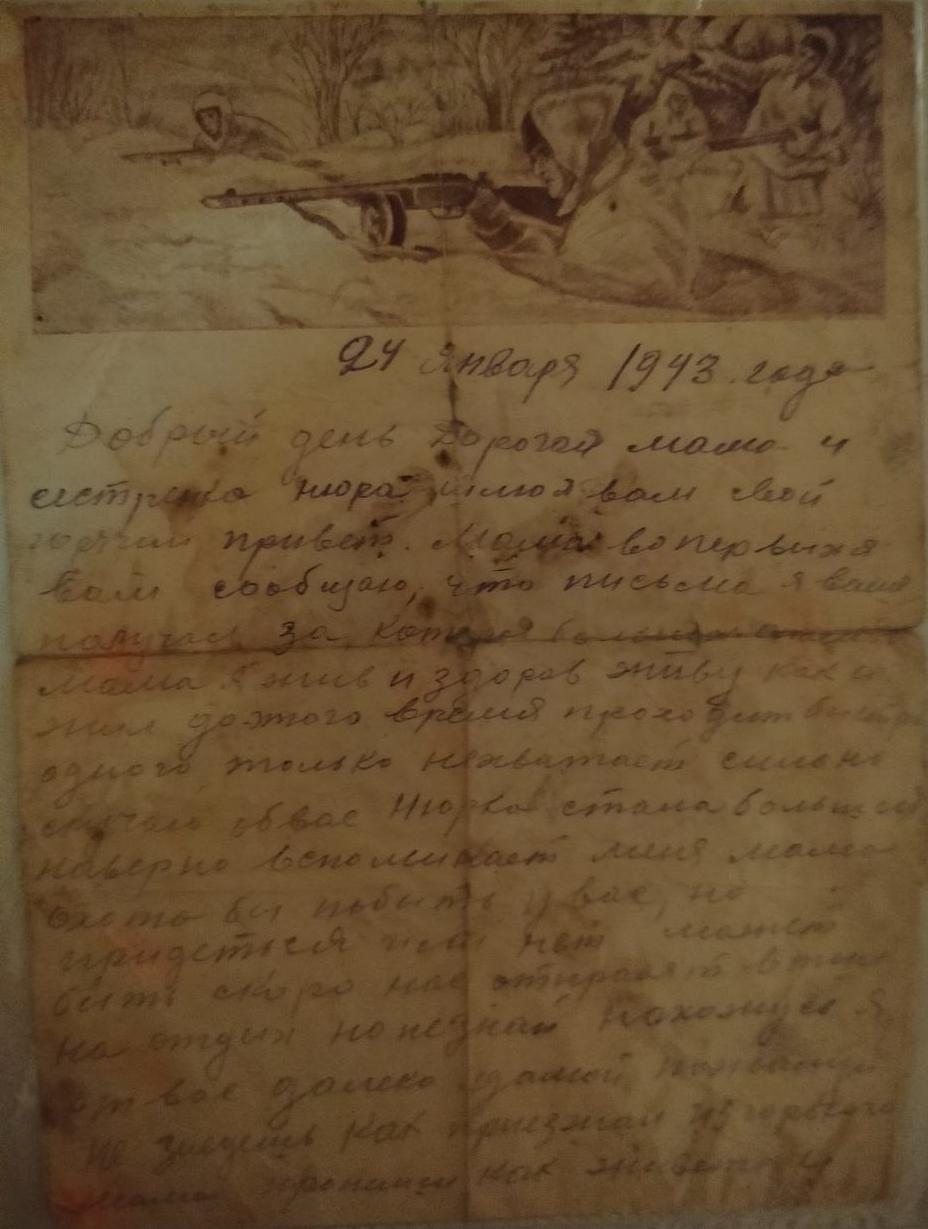 24 января 1943 года
Добрый день Дорогая мама и
сестрёнка Нюра шлю я вам свой
горячий привет. Мама во первых я
вам сообщаю, что письма я ваши
получил за которые большое
мама я жив и здоров живу как и
жил до этого время проходит быстро
одного только нехватает сильно
скучаю об вас Нюрка стала большая
наверно вспоминает меня мама
охота бы побыть у вас, но
придеться или нет может
быть скоро нас отправят в тыл
на отдых но незнаю нахожусь я
от вас далеко домой
не заедешь как приезжал из Горького
мама пропиши как живете и